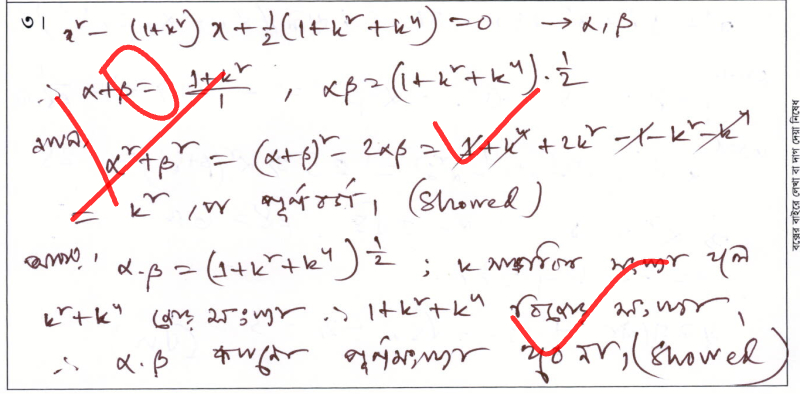 ৩। x² - (1+k²) x + ½(1+k²+k⁴) = 0 → α, β
∴ α+β = (1+k²)/1 , αβ = (1+k²+k⁴) · ½
10
এখন, α²+β² = (α+β)² - 2αβ = 1+k⁴+2k²-1-k²-k⁴
= k² , যা পূর্ণবর্গ, (Showed)
আবার, α.β = (1+k²+k⁴) ½ ; k স্বাভাবিক সংখ্যা হলে
k²+k⁴ জোড় সংখ্যা ∴ 1+k²+k⁴ বিজোড় সংখ্যা,
∴ α.β কখনো পূর্ণসংখ্যা নয়, (Showed)
বক্সের বাইরে লেখা বা দাগ দেয়া নিষেধ